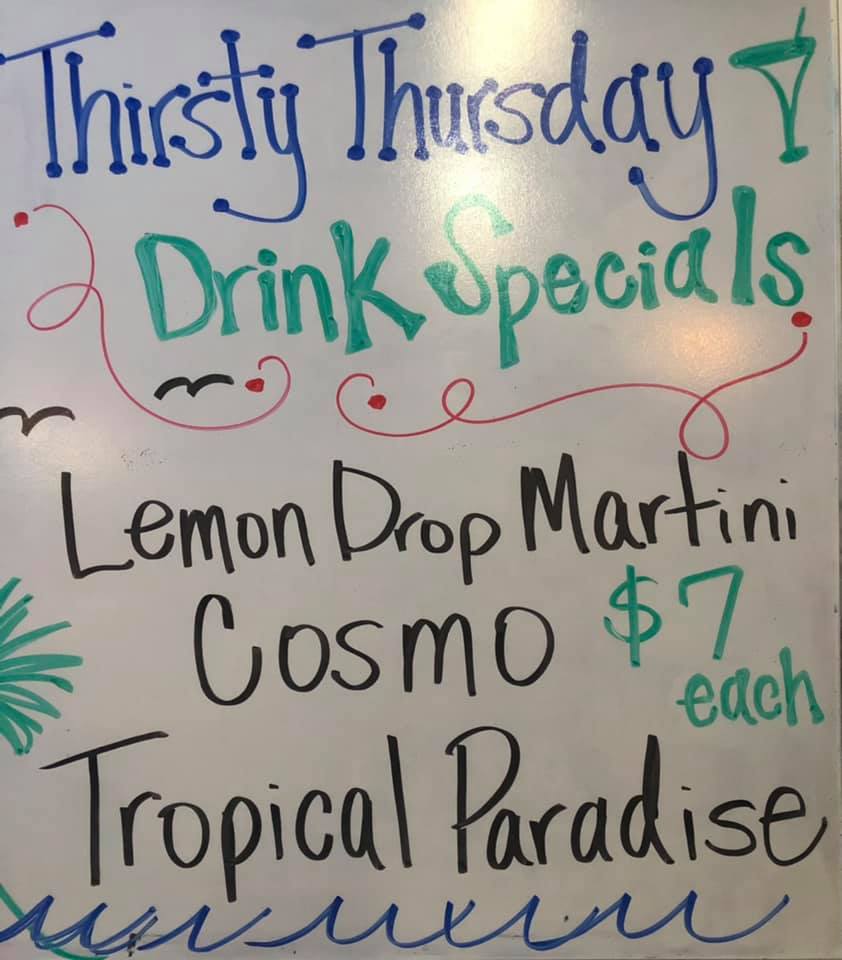 Thirsty Thursday
Drink Specials
Lemon Drop Martini
Cosmo $7
each
Tropical Paradise